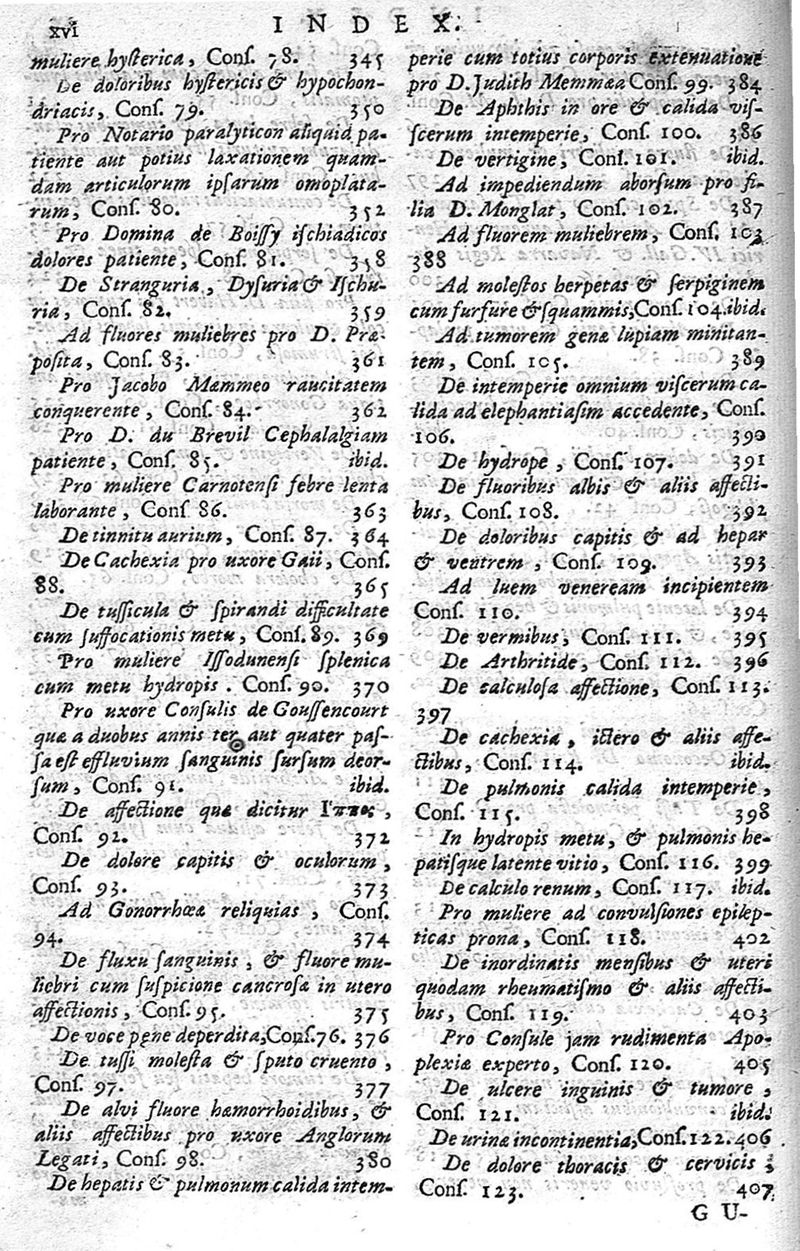 xvi
INDEX.
muliere hysterica, Conſ. 78. 345
De doloribus hyſtericis & hypochon-
driacis, Conſ. 79. 350
Pro Notario paralyticon aliquid pa-
tiente aut potius laxationem quam-
dam articulorum ipſarum omoplata-
rum, Conſ. 80. 352
Pro Domina de Boiſſy iſchiadicos
dolores patiente, Conſ. 81. 358
De Stranguria, Dyſuria & Iſchu-
ria, Conſ. 82. 359
Ad fluores muliebres pro D. Præ-
poſita, Conſ. 83. 361
Pro Jacobo Mæmmeo raucitatem
conquerente, Conſ. 84. 362
Pro D. du Brevil Cephalalgiam
patiente, Conſ. 85. ibid.
Pro muliere Carnotenſi febre lenta
laborante, Conſ 86. 363
De tinnitu aurium, Conſ. 87. 364
De Cachexia pro uxore Gaii, Conſ.
88. 365
De tuſſicula & ſpirandi difficultate
cum ſuffocationis metu, Conſ. 89. 369
Pro muliere Iſſodunenſi ſplenica
cum metu hydropis. Conſ. 90. 370
Pro uxore Conſulis de Gouſſencourt
quæ a duobus annis ter aut quater paſ-
ſa eſt effluvium ſanguinis ſurſum deor-
ſum, Conſ. 91. ibid.
De affectione quæ dicitur Ιππος,
Conſ. 92. 372
De dolore capitis & oculorum,
Conſ. 93. 373
Ad Gonorrhœa reliquias, Conſ.
94. 374
De fluxu ſanguinis, & fluore mu-
liebri cum ſuſpicione cancroſa in utero
affectionis, Conſ. 95. 375
De voce pene deperdita, Conſ. 76. 376
De tuſſi moleſta & ſputo cruento,
Conſ. 97. 377
De alvi fluore hæmorrhoidibus, &
aliis affectibus pro uxore Anglorum
Legati, Conſ. 98. 380
De hepatis & pulmonum calida intem-
perie cum totius corporis extenuatione
pro D. Judith Memmæa Conſ. 99. 384
De Aphthis in ore & calida viſ-
ſcerum intemperie, Conſ. 100. 386
De vertigine, Conſ. 101. ibid.
Ad impediendum aborſum pro fi-
lia D. Monglat, Conſ. 102. 387
Ad fluorem muliebrem, Conſ. 103
388
Ad moleſtos herpetas & ſerpiginem
cum furfure & ſquammis, Conſ. 104. ibid.
Ad tumorem genæ lupiam minitan-
tem, Conſ. 105. 389
De intemperie omnium viſcerum ca-
lida ad elephantiaſim accedente, Conſ.
106. 390
De hydrope, Conſ. 107. 391
De fluoribus albis & aliis affecti-
bus, Conſ. 108. 392
De doloribus capitis & ad hepar
& ventrem, Conſ. 109. 393
Ad luem veneream incipientem
Conſ. 110. 394
De vermibus, Conſ. 111. 395
De Arthritide, Conſ. 112. 396
De calculoſa affectione, Conſ. 113.
397
De cachexia, ictero & aliis affe-
ctibus, Conſ. 114. ibid.
De pulmonis calida intemperie,
Conſ. 115. 398
In hydropis metu, & pulmonis he-
patiſque latente vitio, Conſ. 116. 399
De calculo renum, Conſ. 117. ibid.
Pro muliere ad convulſiones epilep-
ticas prona, Conſ. 118. 402
De inordinatis menſibus & uteri
quodam rheumatiſmo & aliis affecti-
bus, Conſ. 119. 403
Pro Conſule jam rudimenta Apo-
plexiæ experto, Conſ. 120. 405
De ulcere inguinis & tumore,
Conſ. 121. ibid.
De urinæ incontinentia, Conſ. 122. 406
De dolore thoracis & cervicis;
Conſ. 123. 407
G U-